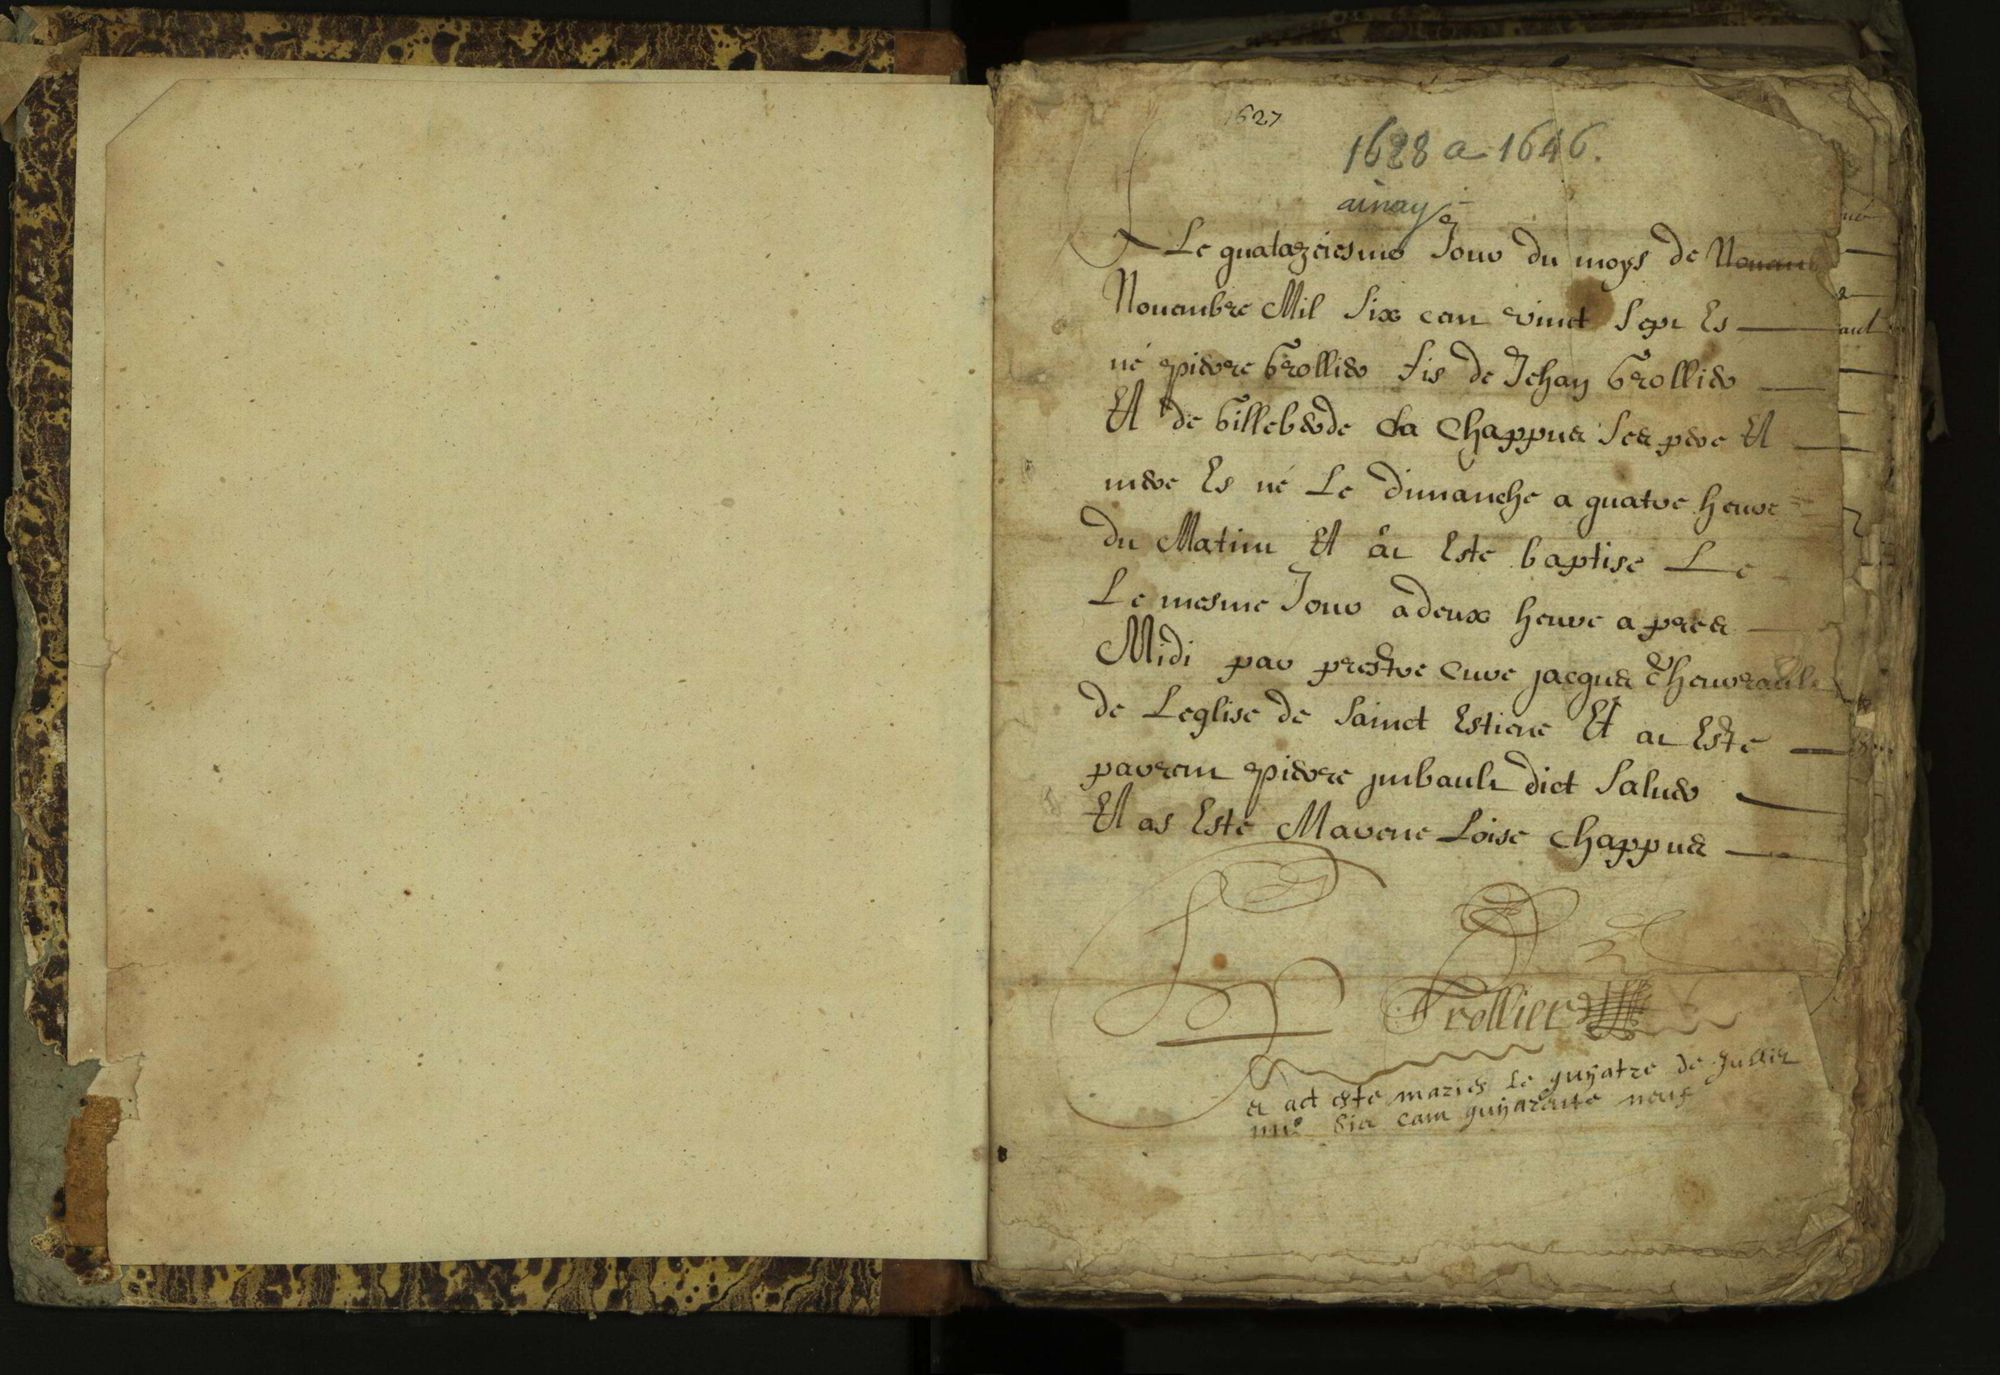 1627
1628 a 1646.
ainay
Le quatazeiesme Jour du moys de Nouemb
Nouembre Mil Six cen vinct Sept Es
né pierre Trollier fis de Jehan Trollier
Et de Gilleberde Chappus Ses pere Et
mere Es né Le dimanche a quatre heure
du Matin Et at Este baptise Le
Le mesme Jour a deux heure apres
Midi par prestre cure jacques
de Leglise de Sainct Estiene Et at Este
parrein pierre jmbault dict Saluer
Et as Este Marene Loise Chappus
Trollier
a act este maries le quyatre de Jullier
mil six cam quyarente neuf